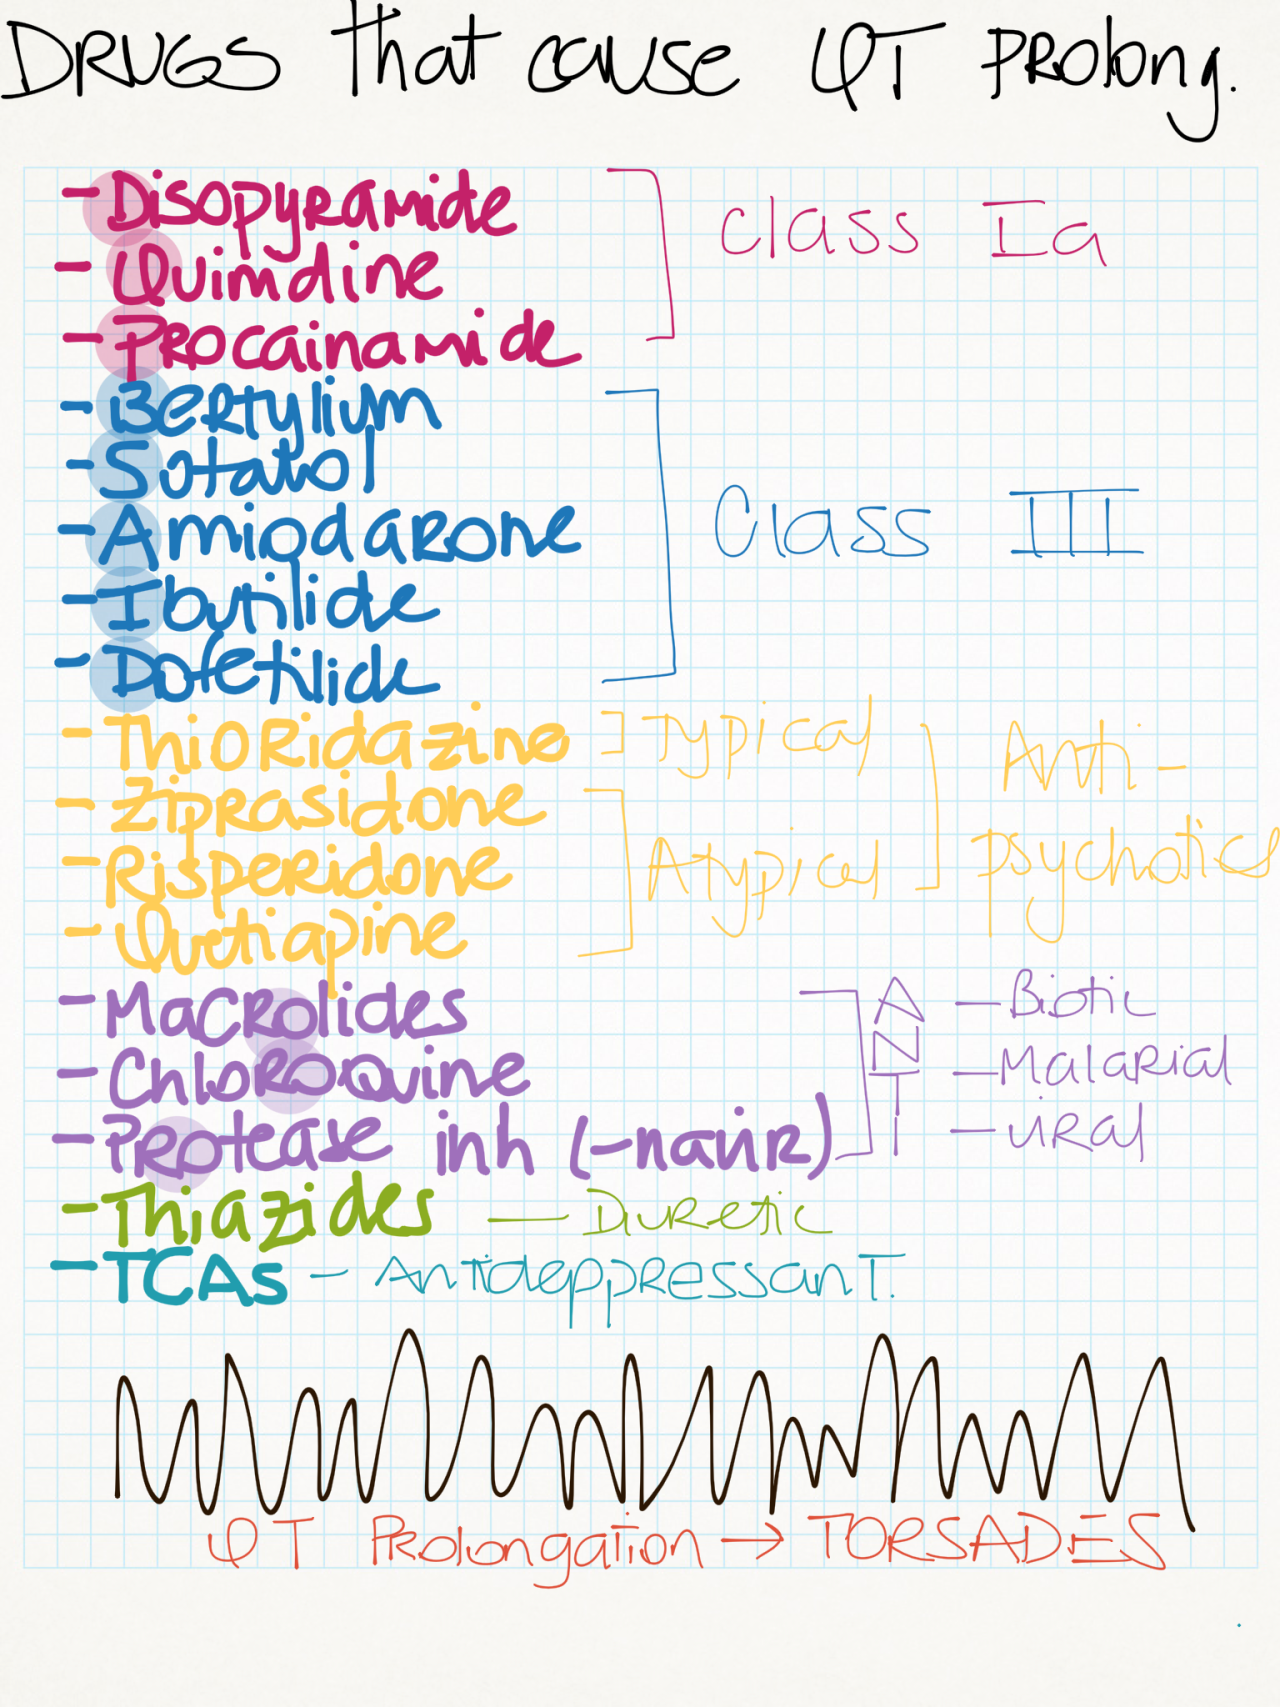 DRUGS that cause QT PROlong.
- Disopyramide
Class Ia
- Quimdine
- PROcainamide
- BeRtylium
- Sotalol
Class III
- AmiodaRone
- Ibutilide
- Dofetilide
- ThioRidazine ] Typical
Anti-
- Ziprasidone
- RispeRidone
Atypical
psychotics
- Quetiapine
- MacRolides
A - Biotic
N
- ChloROQuine
T - MalaRial
- PRotease inh (-naviR)
I - viRal
- Thiazides - DiuRetic
- TCAs - AntideppRessanT.
QT PRolongaTion → TORSADES